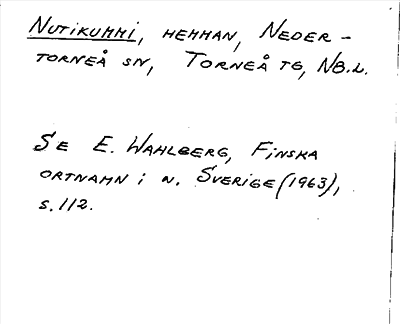 NUTIKUMMI, HEMMAN, NEDER-
TORNEÅ SN, TORNEÅ TG, NB.L.
SE E. WAHLBERG, FINSKA
ORTNAMN i N. SVERIGE (1963),
S. 112.